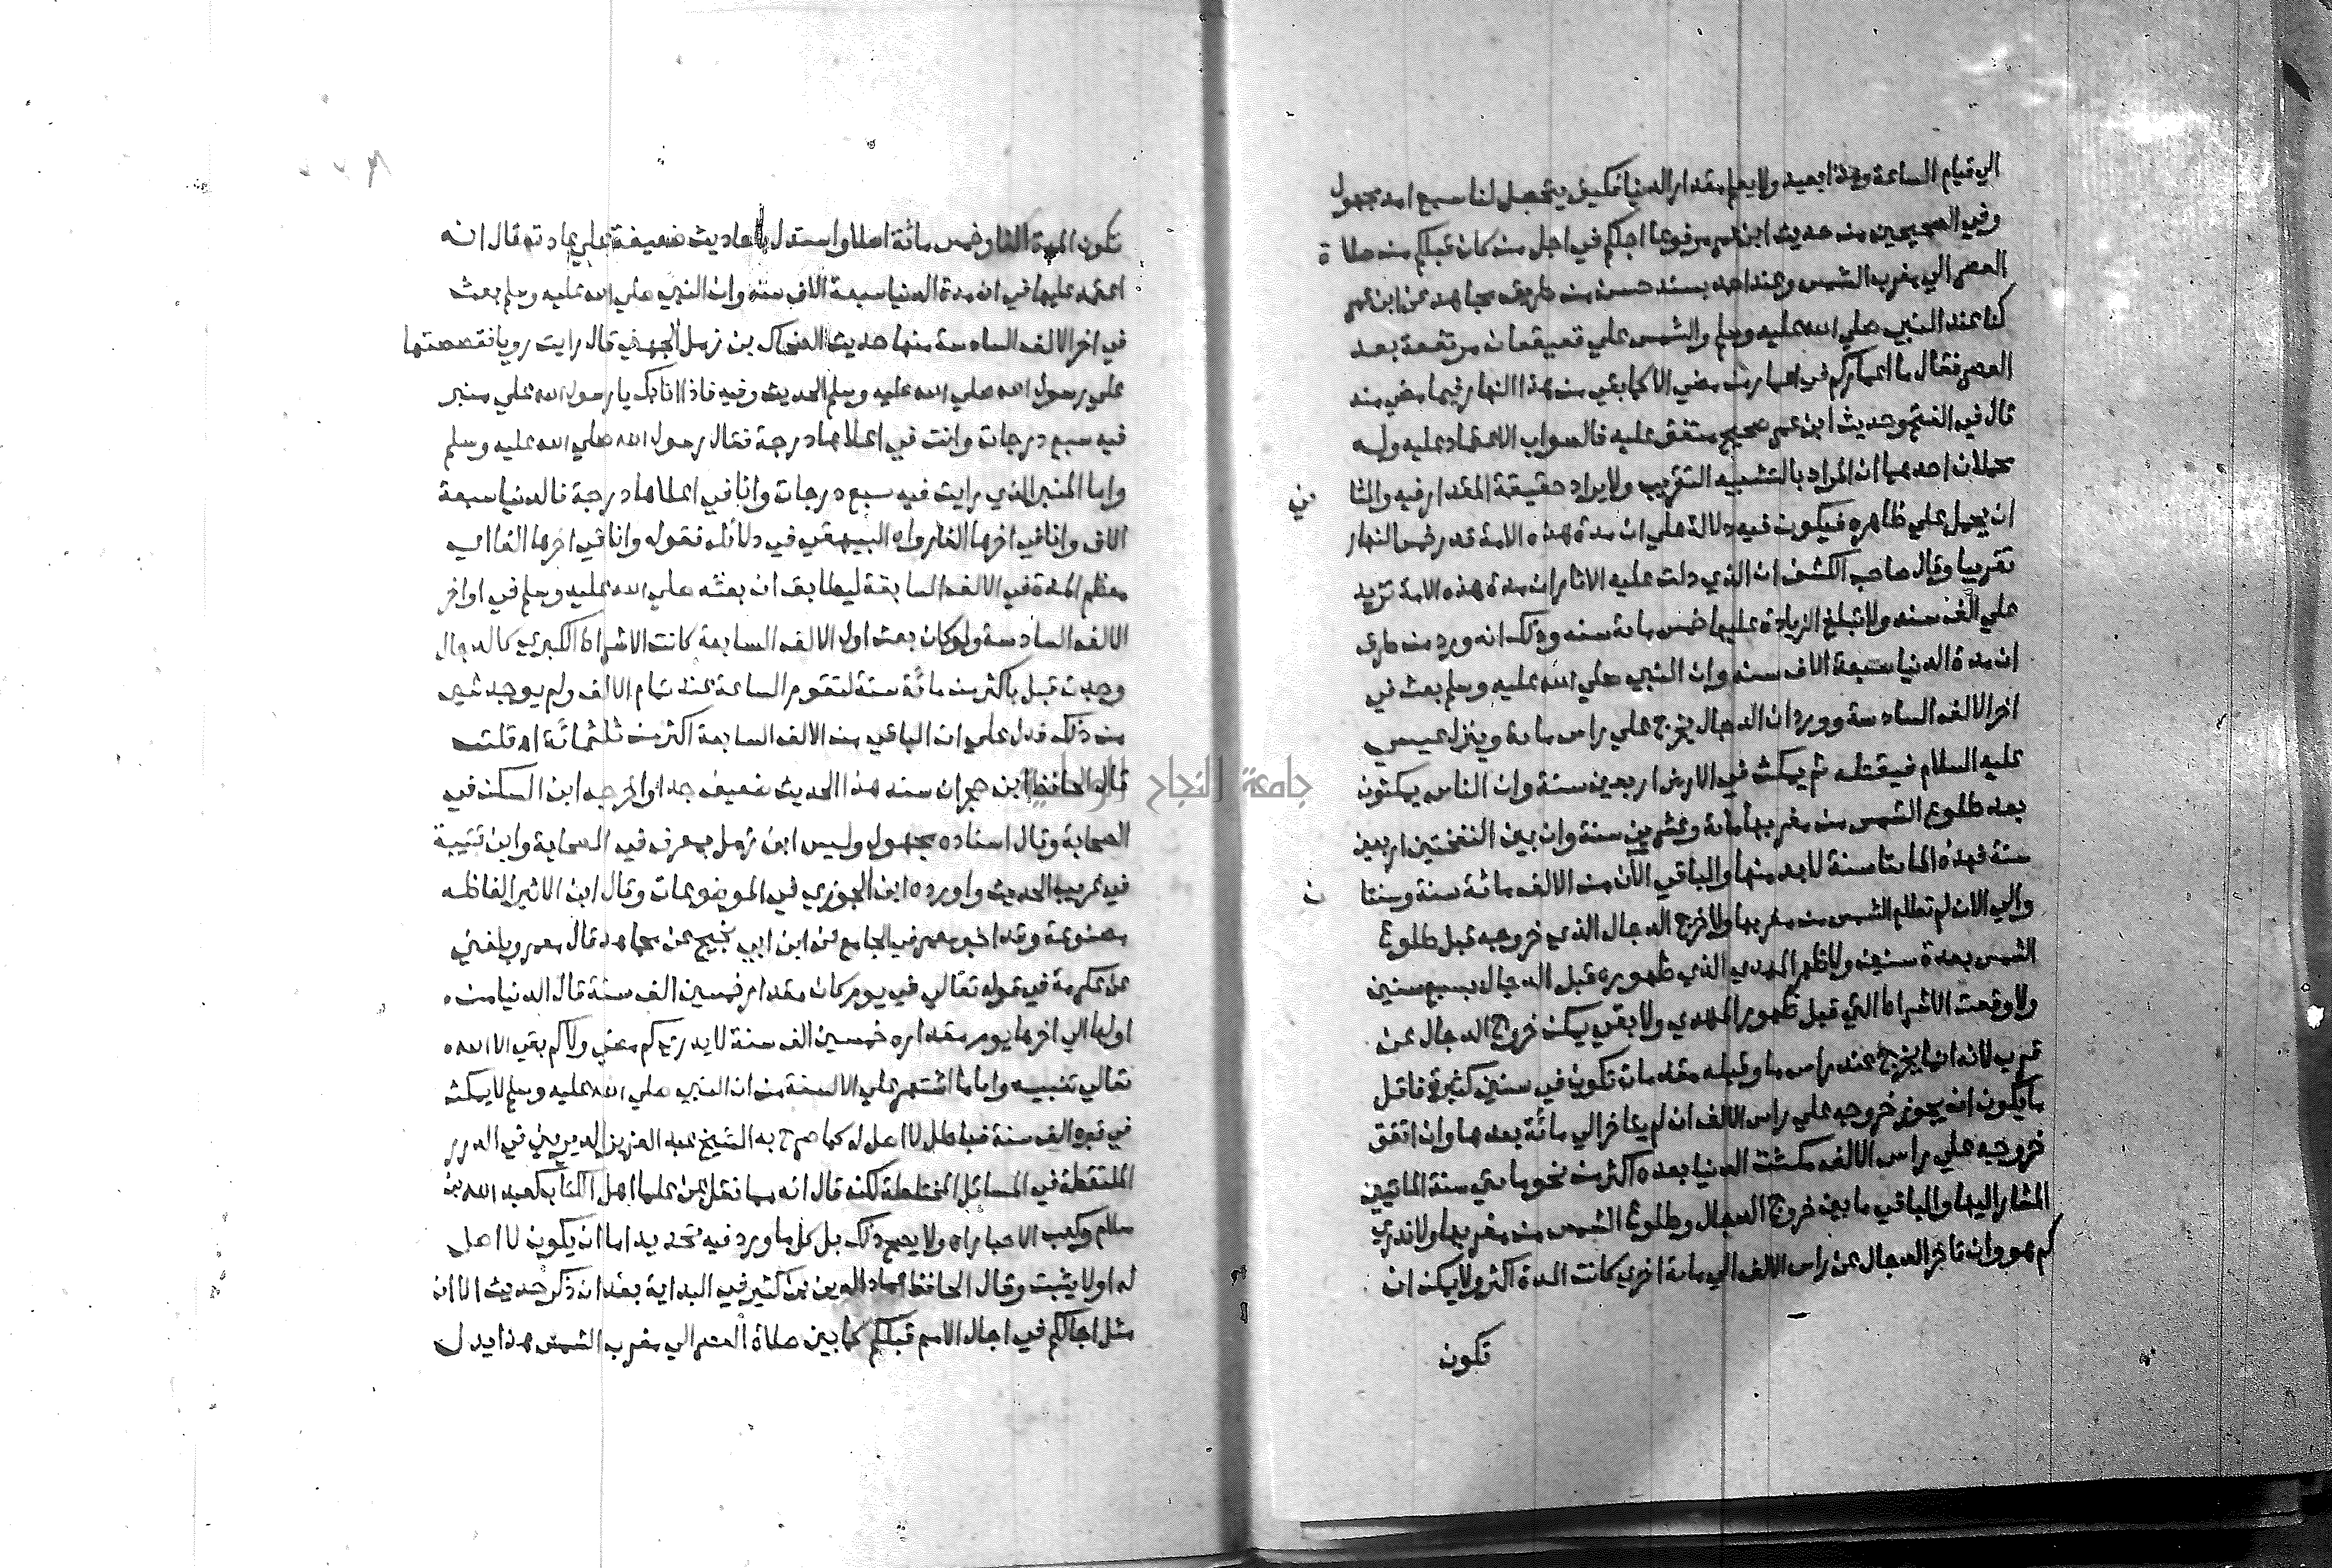 الي قيام الساعة وهذا بعيد ولا يعلم مقدار الدنيا فكيف يتحصل لنا سبع امد مجهول
وفي الصحيحين من حديث ابن عمر مرفوعا اجلكم في اجل من كان قبلكم من صلاة
العصر الي مغرب الشمس وعند احمد بسند حسن من طريق مجاهد عن ابن عمر
كنا عند النبي صلي الله عليه وسلم والشمس علي قعيقعان مرتفعة بعد
العصر فقال ما اعماركم في اعمار من مضي الا كما بقي من هذا النهار فيما مضي منه
قال في الفتح وحديث ابن عمر صحيح متفق عليه فالصواب الاعتماد عليه وله
محملان احدهما ان المراد بالتشبيه التقريب ولا يراد حقيقة المقدار فيه والثاني
ان يحمل علي ظاهره فيكون فيه دلالة علي ان مدة هذه الامة قدر خمس النهار
تقريبا وقال صاحب الكشف ان الذي دلت عليه الاثار ان مدة هذه الامة تزيد
علي الف سنه ولا تبلغ الزيادة عليها خمس مائة سنه وذلك انه ورد من طرق
ان مدة الدنيا سبعة الاف سنه وان النبي صلي الله عليه وسلم بعث في
اخر الالف السادسة وورد ان الدجال يخرج علي راس ماة وينزل عيسي
عليه السلام فيقتله ثم يمكث في الارض اربعين سنة وان الناس يمكثون
بعد طلوع الشمس من مغربها مائة وعشرين سنة وان بين النفختين اربعين
سنة فهذه المائتا سنة لابد منها والباقي الآن من الالف مائة سنة وسنتان
والي الان لم تطلع الشمس من مغربها ولا خرج الدجال الذي خروجه قبل طلوع
الشمس بعدة سنين ولا ظهر المهدي الذي ظهوره قبل الدجال بسبع سنين
ولا وقعت الاشراط التي قبل ظهور المهدي ولا بقي يمكن خروج الدجال عن
قرب لانه انما يخرج عند راس ماة وقبله مقدمات تكون في سنين كثيرة فاقل
ما يكون ان يجوز خروجه علي راس الالف ان لم يتاخر الي مائة بعدها وان اتفق
خروجه علي راس الالف مكثت الدنيا بعده اكثر من نحو مائتي سنة المائتين
المشار اليها والباقي ما بين خروج الدجال وطلوع الشمس من مغربها ولا ندري
كم هو وان تاخر الدجال عن راس الالف الي مائة اخري كانت المدة اكثر ولا يمكن ان
تكون
تكون المدة الفا وخمس مائة اصلا واستدل باحاديث ضعيفة علي عادته قال انه
اعتمد عليها في ان مدة الدنيا سبعة الاف سنه وان النبي صلي الله عليه وسلم بعث
في اخر الالف السادسة منها حديث الضحاك بن زمل الجهني قال رايت رويا فقصصتها
علي رسول الله صلي الله عليه وسلم الحديث وفيه فاذا انا بك يا رسول الله علي منبر
فيه سبع درجات وانت في اعلاها درجة فقال رسول الله صلي الله عليه وسلم
واما المنبر الذي رايت فيه سبع درجات وانا في اعلاها درجة فالدنيا سبعة
الاف وانا في اخرها الفا رواه البيهقي في دلائله فقوله وانا في اخرها الفا اي
معظم المدة في الالف السابقة ليطابق ان بعثه صلي الله عليه وسلم في اواخر
الالف السادسة ولو كان بعث اول الالف السابعة كانت الاشراط الكبري كالدجال
وجدت قبل باكثر من مائة سنة لتقوم الساعة عند تمام الالف ولم يوجد شي
من ذلك فدل علي ان الباقي من الالف السابعة اكثر من ثلثمائة اه قلت
قال الحافظ ابن حجر ان سند هذا الحديث ضعيف جدا واخرجه ابن السكن في
الصحابة وقال اسناده مجهول وليس ابن زمل بمعرف في الصحابة وابن قتيبة
في غريب الحديث واورده ابن الجوزي في الموضوعات وقال ابن الاثير الفاظه
مصنوعة وقد اخرج معمر في الجامع عن ابن ابي نجيح عن مجاهد قال معمر وبلغني
عن عكرمة في قوله تعالي في يوم كان مقداره خمسين الف سنة قال الدنيا من
اولها الي اخرها يوم مقداره خمسين الف سنة لا يدري كم مضي ولا كم بقي الا الله
تعالي تنبيه واما ما اشتهر علي الالسنة من ان النبي صلي الله عليه وسلم لا يمكث
في قبره الف سنة فباطل لا اصل له كما صرح به الشيخ عبد العزيز الديريني في الدرر
الملتقطة في المسائل المختلطة لكنه قال انه مما نقل عن علما اهل الكتاب كعبد الله بن
سلام وكعب الاحبار اه ولا يصح ذلك بل كل ما ورد فيه تحديد اما ان يكون لا اصل
له او لا يثبت وقال الحافظ عماد الدين بن كثير في البداية بعد ان ذكر حديث الا ان
مثل اجالكم في اجال الامم قبلكم كما بين صلاة العصر الي مغرب الشمس هذا يدل
جامعة النجاح الوطنية